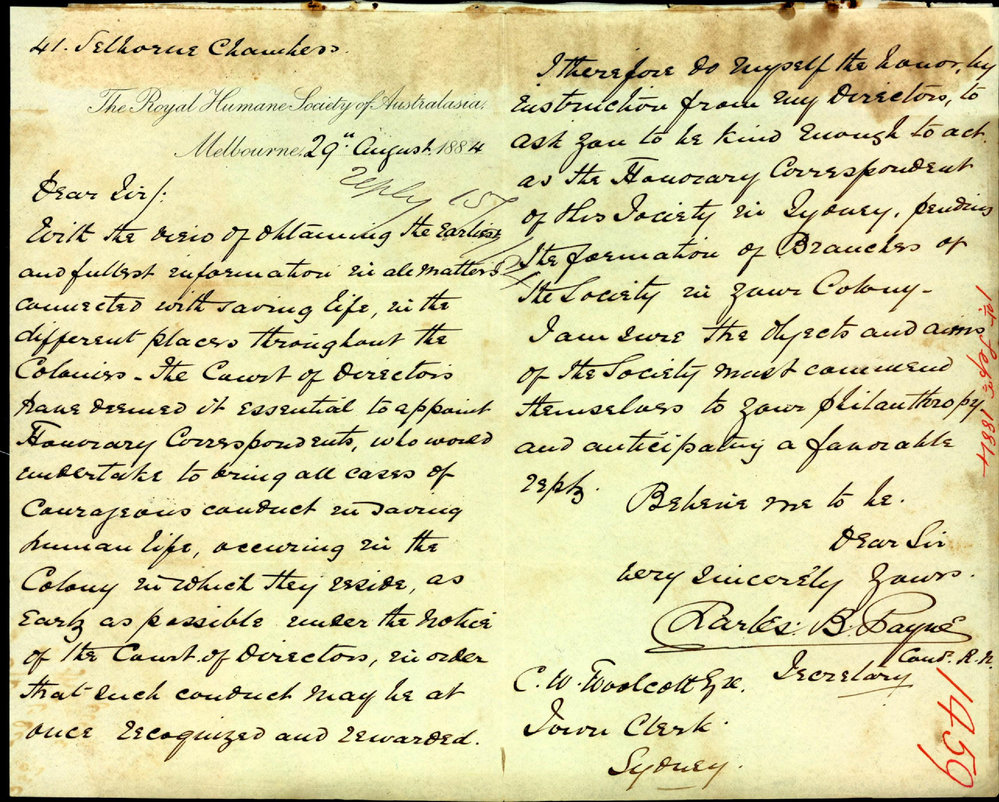 41. Selborne Chambers.
The Royal Humane Society of Australasia,
Melbourne, 29th August, 1884
reply 15/
Dear Sir/:
With the view of obtaining the earliest
and fullest information in all matters
connected with saving life, in the
different places throughout the
Colonies - the Court of Directors
have deemed it essential to appoint
Honorary Correspondents, who would
undertake to bring all cases of
Courageous conduct in saving
human life, occuring in the
Colony in which they reside, as
early as possible under the notice
of the Court of Directors, in order
that such conduct may be at
once recognized and rewarded.
I therefore do myself the honor, by
instruction from my Directors, to
ask you to be kind enough to act
as the Honorary Correspondent
of this Society in Sydney, pending
the formation of Branches of
the Society in your Colony -
I am sure the objects and aims
of the Society must commend
themselves to your philanthropy
and anticipating a favorable
reply.
Believe me to be.
Dear Sir
very sincerely yours.
Charles. B. Payne
Comr. R.N.
Secretary
C. W. Woolcott Esq.
Town Clerk
Sydney.
1 Sept 1884
1459